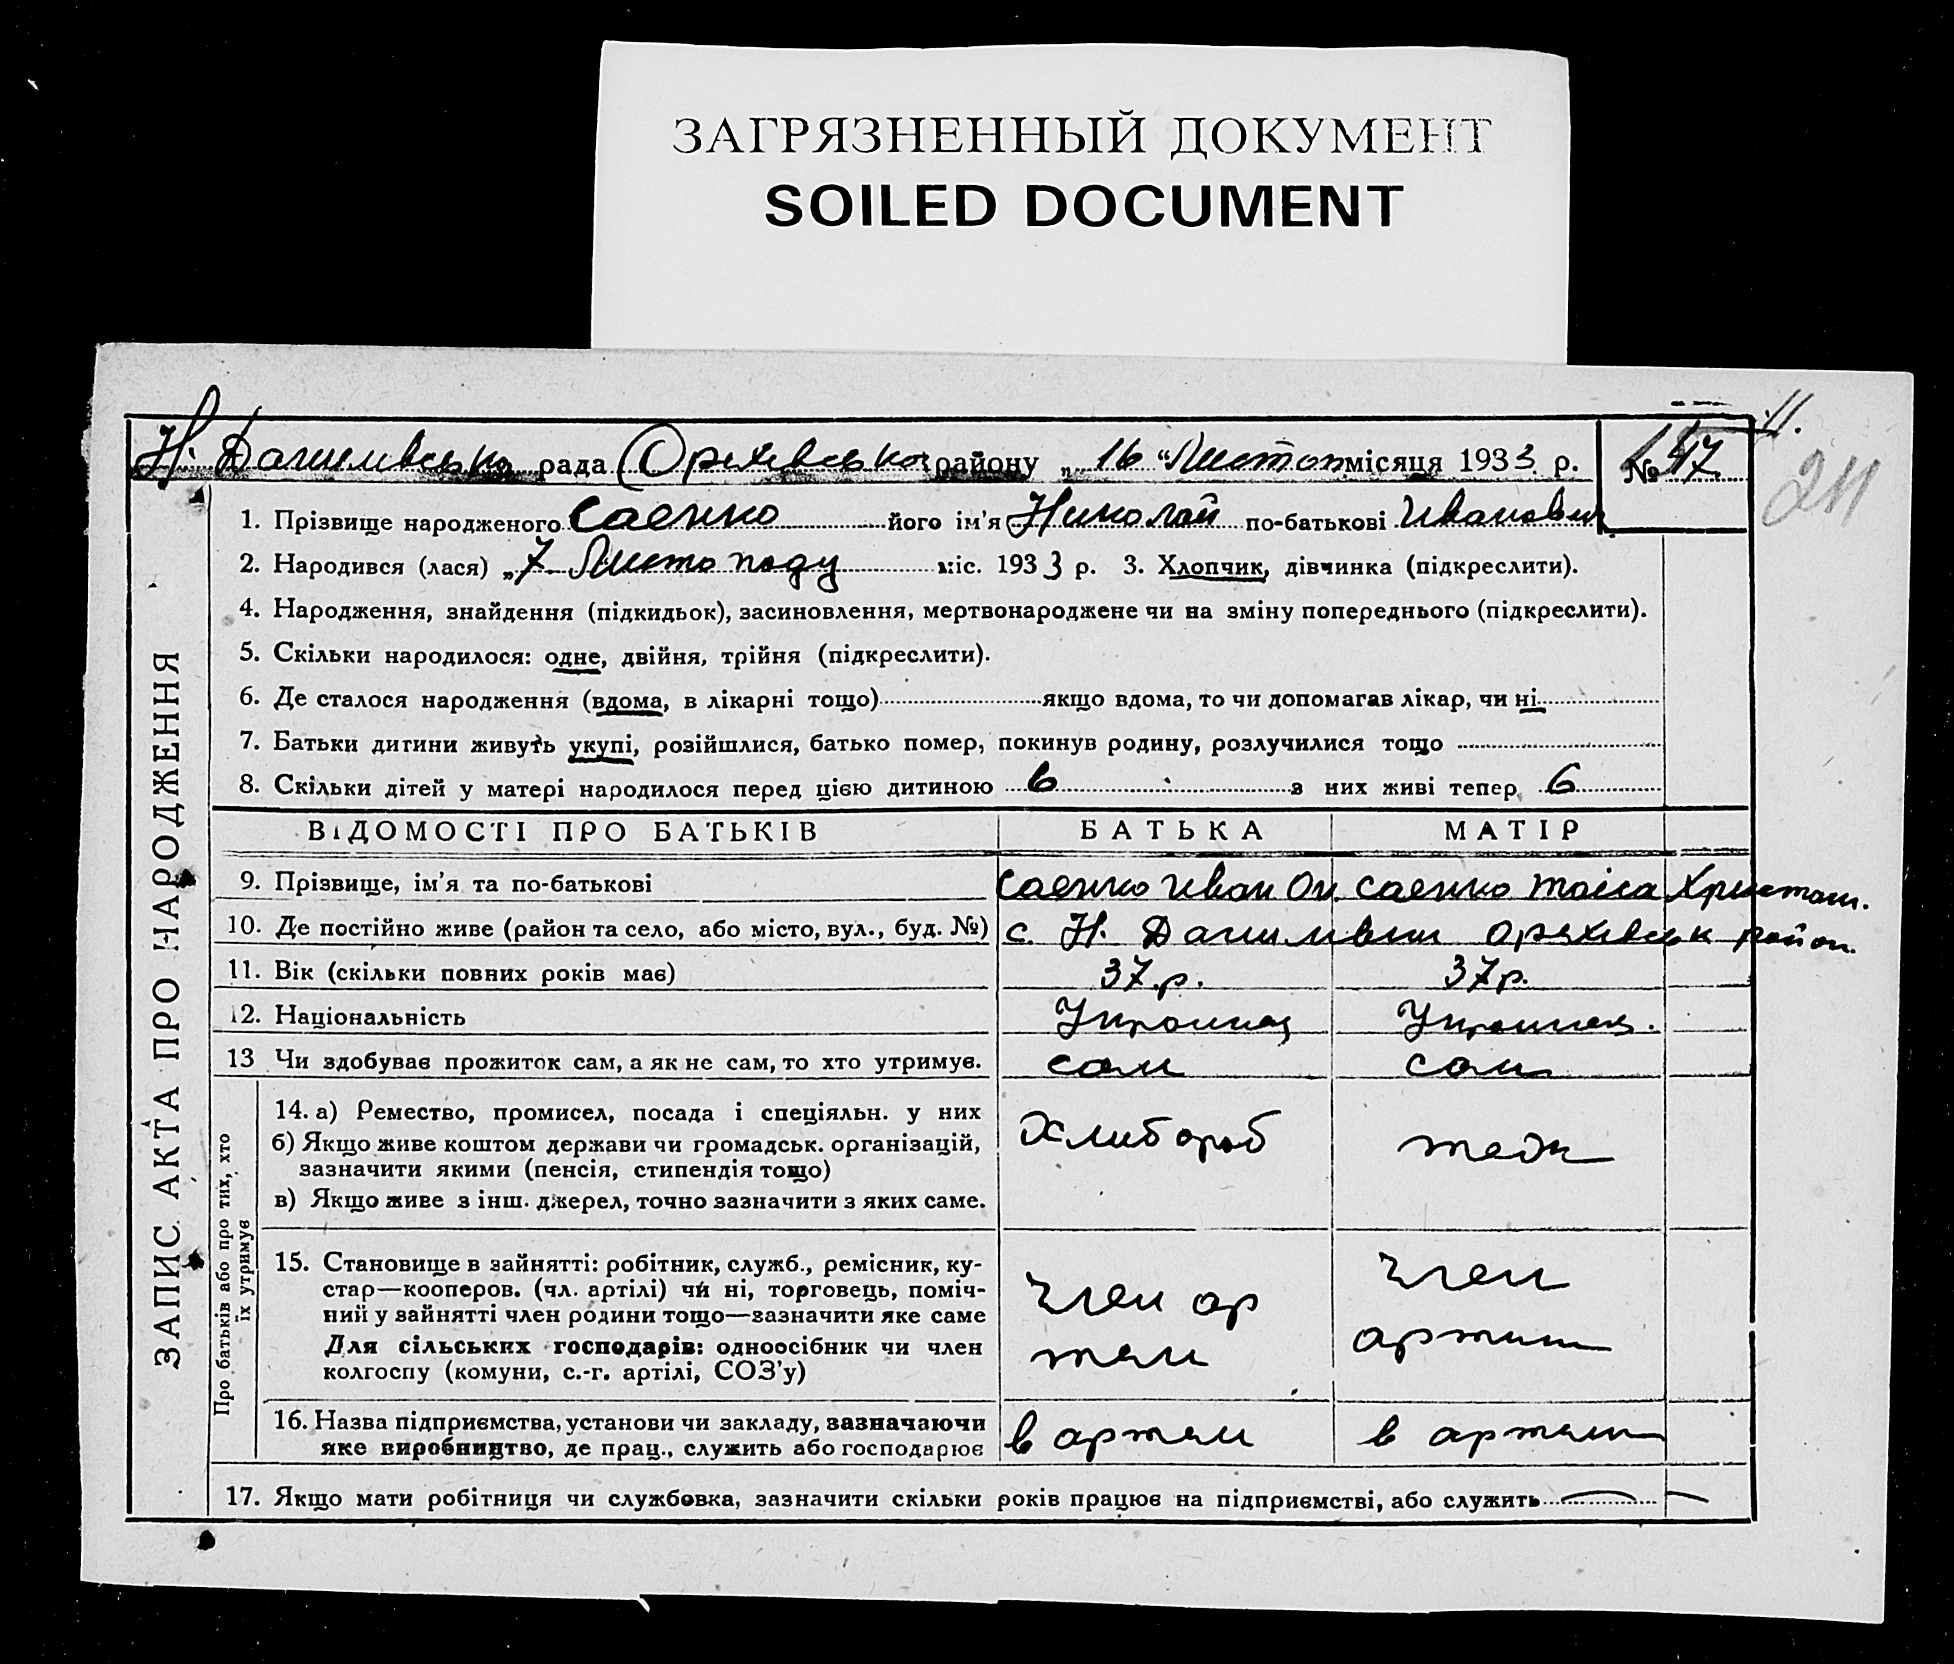 ЗАГРЯЗНЕННЫЙ ДОКУМЕНТ
SOILED DOCUMENT
Н. Данилівсько рада Орехівсько району „16 "Листоп місяця 1933 р. № 47
211
1. Прізвище народженого Саенко його ім'я Николай по-батькові Иванович
2. Народився (лася) „7 Листопаду міс. 1933 р. 3. Хлопчик, дівчинка (підкреслити).
4. Народження, знайдення (підкидьок), засиновлення, мертвонароджене чи на зміну попереднього (підкреслити).
5. Скільки народилося: одне, двійня, трійня (підкреслити).
6. Де сталося народження (вдома, в лікарні тощо) якщо вдома, то чи допомагав лікар, чи ні
7. Батьки дитини живуть укупі, розійшлися, батько помер, покинув родину, розлучилися тощо
8. Скільки дітей у матері народилося перед цією дитиною 6 з них живі тепер 6
ВІДОМОСТІ ПРО БАТЬКІВ БАТЬКА МАТІР
9. Прізвище, ім'я та по-батькові Саенко Иван Саенко Таіса
10. Де постійно живе (район та село, або місто, вул., буд. №) с. Н. Данилівки Оріхівськ район.
11. Вік (скільки повних років має) 37.р. 37р.
12. Національність Украинец Украинец.
13 Чи здобуває прожиток сам, а як не сам, то хто утримує. сам сам
14. а) Ремество, промисел, посада і спеціяльн. у них Хлибороб тедж
б) Якщо живе коштом держави чи громадськ. організацій,
зазначити якими (пенсія, стипендія тощо)
в) Якщо живе з інш. джерел, точно зазначити з яких саме.
15. Становище в зайнятті: робітник, служб., ремісник, ку-
стар—кооперов. (чл. артілі) чи ні, торговець, поміч-
ний у зайнятті член родини тощо—зазначити яке саме
Для сільських господарів: одноосібник чи член
колгоспу (комуни, с.-г. артілі, СОЗ'у)
член ар
тели
член
артели
16. Назва підприємства, установи чи закладу, зазначаючи
яке виробництво, де прац., служить або господарює
в артели в артели
17. Якщо мати робітниця чи службовка, зазначити скільки років працює на підприємстві, або служить
ЗАПИС АКТА ПРО НАРОДЖЕННЯ
Про батьків або про тих, хто
їх утримує